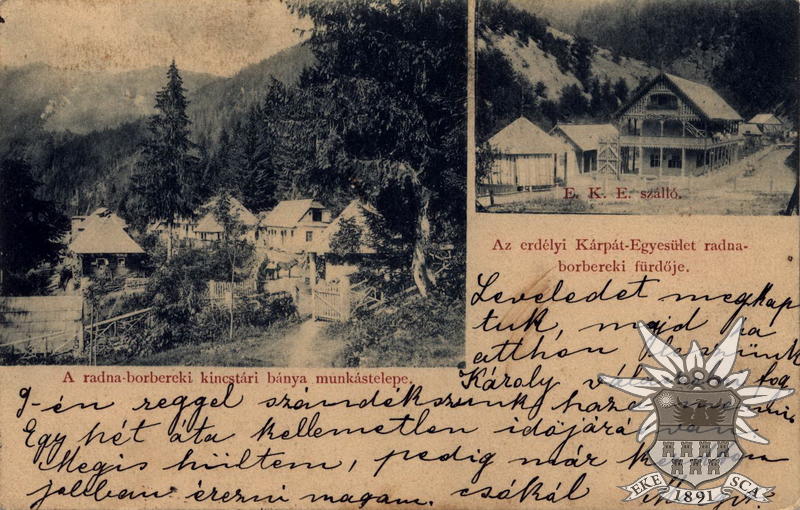 E. K. E. szálló.
Az erdélyi Kárpát-Egyesület radna-
borbereki fürdője.
A radna-borbereki kincstári bánya munkástelepe.
Leveledet megkap
tuk, majd ha
atthon leszünk
Károly válaszolni fog
9-én reggel szándékszunk haza
Egy hét óta kellemetlen időjárá van
Megis hültem, pedig már kezdtem
jobban érezni magam. csókál
EKE 1891 SCA